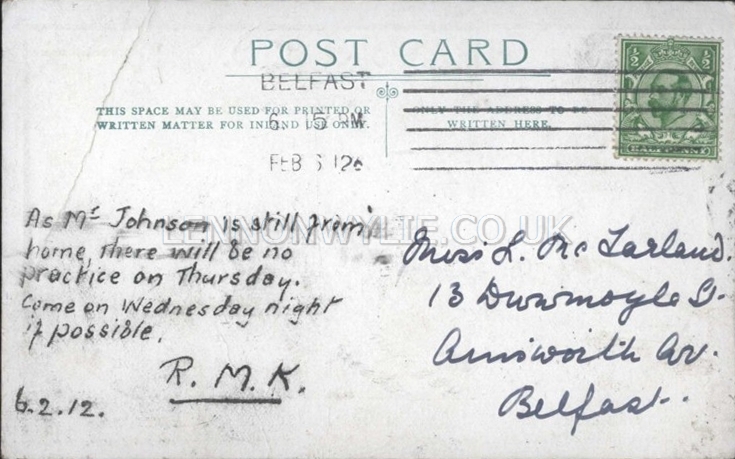 POST CARD
BELFAST
6. 15 PM
FEB 6 12
THIS SPACE MAY BE USED FOR PRINTED OR
WRITTEN MATTER FOR INLAND USE ONLY.
ONLY THE ADDRESS TO BE
WRITTEN HERE.
½ ½
HALFPENNY
LENNONWYLIE.CO.UK
As Mr Johnson is still from
home, there will be no
practice on Thursday.
Come on Wednesday night
if possible.
R. M. K.
6.2.12.
Miss L. McFarland.
13 Dunmoyle St.
Ainsworth Av.
Belfast.